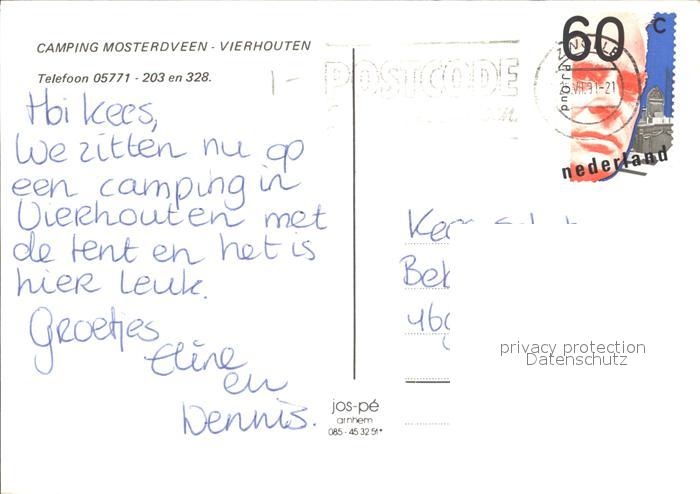 CAMPING MOSTERDVEEN - VIERHOUTEN
Telefoon 05771 - 203 en 328.
Hoi Kees,
We zitten nu op
een camping in
Vierhouten met
de tent en het is
hier leuk.
Groetjes
Eline
en
Dennis.
jos-pé
arnhem
085 - 45 32 51*
POSTCODE
60 c
nederland
privacy protection
Datenschutz